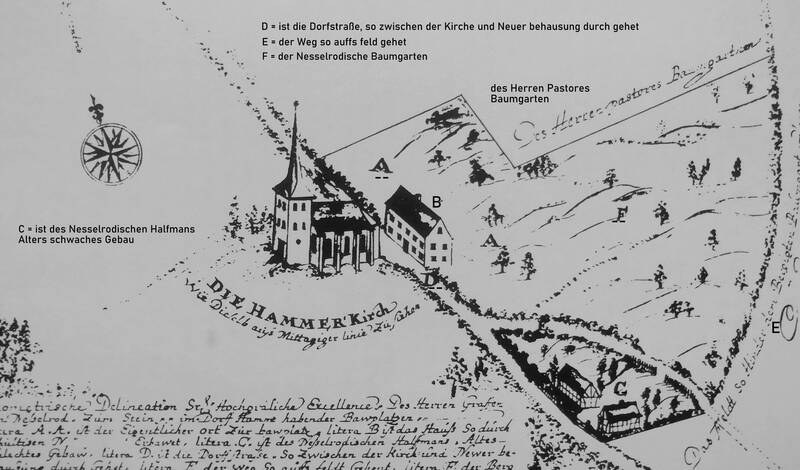 D = ist die Dorfstraße, so zwischen der Kirche und Neuer behausung durch gehet
E = der Weg so auffs feld gehet
F = der Nesselrodische Baumgarten
des Herren Pastores
Baumgarten
Des Herren pastores Baumgarten
A
B
C = ist des Nesselrodischen Halfmans
Alters schwaches Gebau
F
A
D
DIE HAMMER Kirch
Wie Dieselb auß Mittagiger linie Zu sehen
E
C
Das Mildt so hinder dem
Delineation Hochgräliche Excellence Des Herren Grafen
Nesselrod. Zum Stein im Dorf Hamme habender Bawplatzen
A. A. ist der Eigentlicher Ort Zur bawplatz litera B ist das Hauß So durch
N Erbawt, litera C. ist des Neßelrodischen Halfmans Altes
Gebaw, litera D. ist die Dorf Straße. So Zwischen der Kirch und Newer be-
durch Gehet, litera E der Weg So aufs feldt Gehent, litera F. der Berg